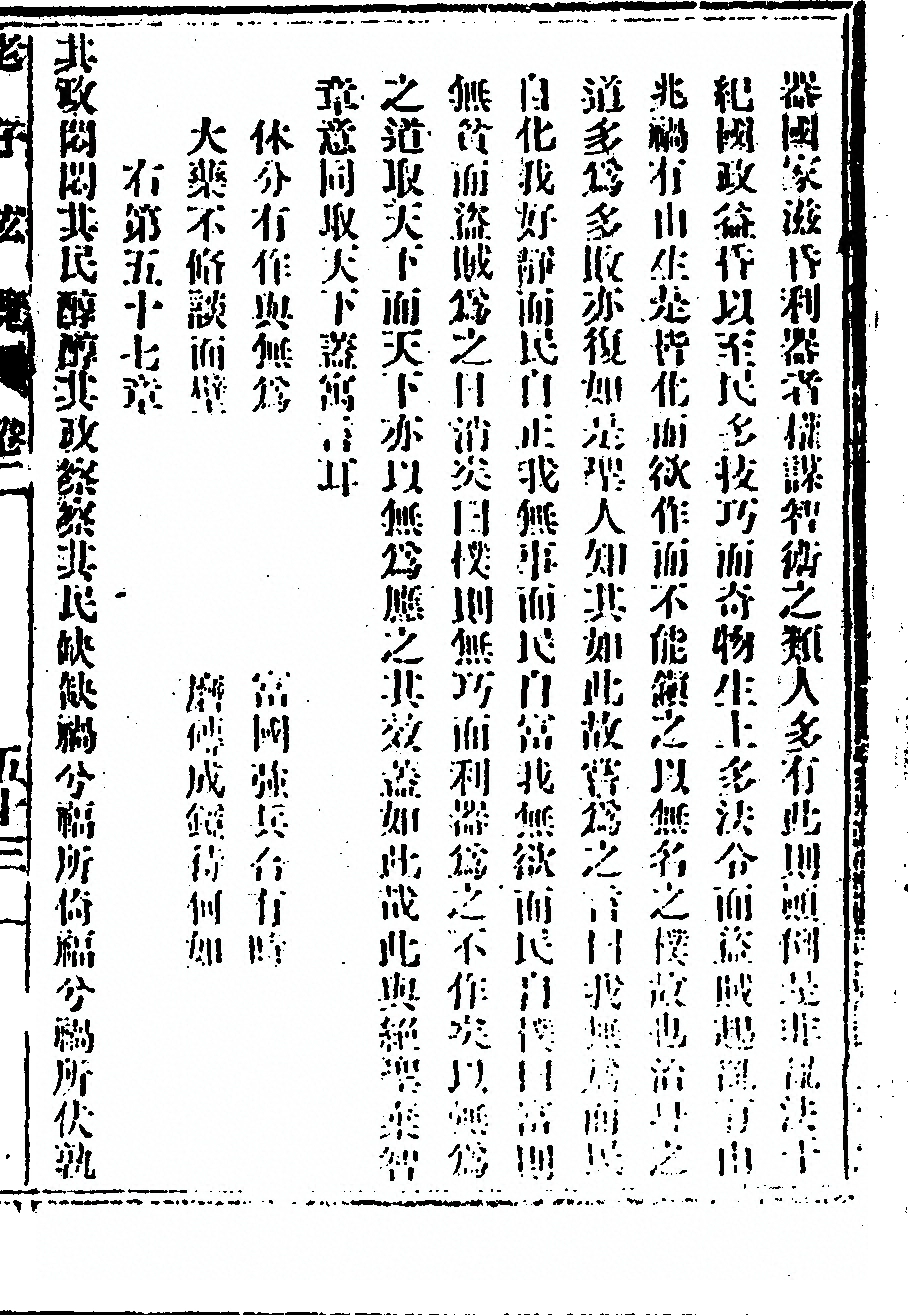 器國家滋昏利器者權謀智術之類人多有此則顚倒是非亂法干
紀國政益昏以至民多技巧而奇物生上多法令而盜賊起亂有由
兆禍有由生是皆化而欲作而不能鎭之以無名之樸故也治身之
道多爲多敗亦復如是聖人知其如此故嘗爲之言曰我無爲而民
自化我好靜而民自正我無事而民自富我無欲而民自樸曰富則
無貧而盜賊爲之日消矣曰樸則無巧而利器爲之不作矣以無爲
之道取天下而天下亦以無爲應之其效蓋如此哉此與絕聖棄智
章意同取天下蓋寓言耳
休分有作與無爲 富國強兵各有時
大藥不脩談面壁 磨磚成鏡待何如
右第五十七章
其政悶悶其民醇醇其政察察其民缺缺禍兮福所倚福兮禍所伏孰
老子玄覽 卷二 五十三